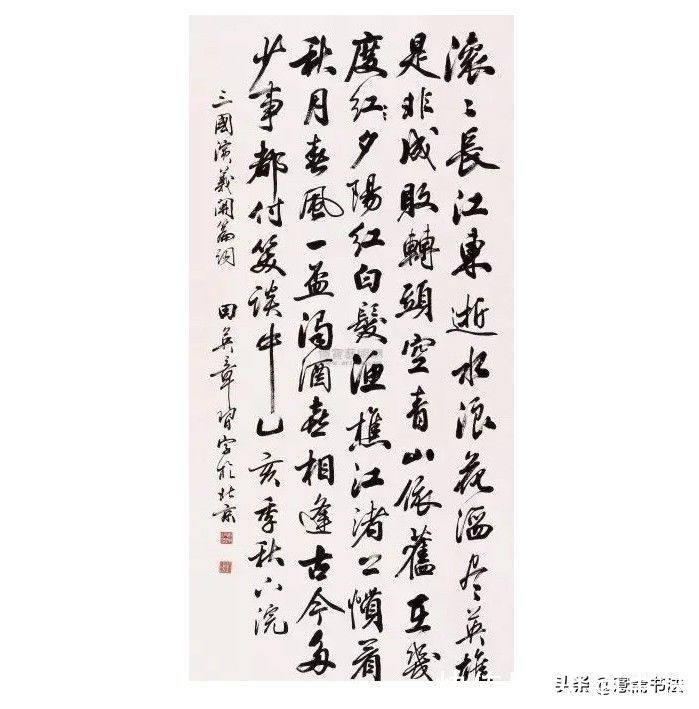 滚〻長江東逝水浪花淘尽英雄
是非成敗轉頭空青山依舊在幾
度红夕陽红白髮渔樵江渚上慣看
秋月春風一壺濁酒喜相逢古今多
少事都付笑談中乙亥季秋下浣
三國演義開篇詞 田英章習字於北京
头条
书法